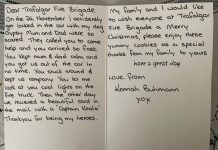 Dear Trafalgar Fire Brigade
On the 26 November I accidently
got locked in the car with my dog
Gypsy. Mum and Dad were so
scared. They called you to come
help and you arrived so fast.
You kept mum & dad calm and
you got us out of the car in
no time. You stuck around &
kept us company. You let me
look at you cool lights on the
fire truck. Then the other day
we recieved a beautiful card in
the mail with a Captain Koala!
Thankyou for being my heroes.
My family and I would like
to wish everyone at Trafalgar
Fire Brigade a Merry
Christmas, please enjoy these
yummy cookies as a special
thanks from my family to yours
have a great day
Love from
Hannah
xox